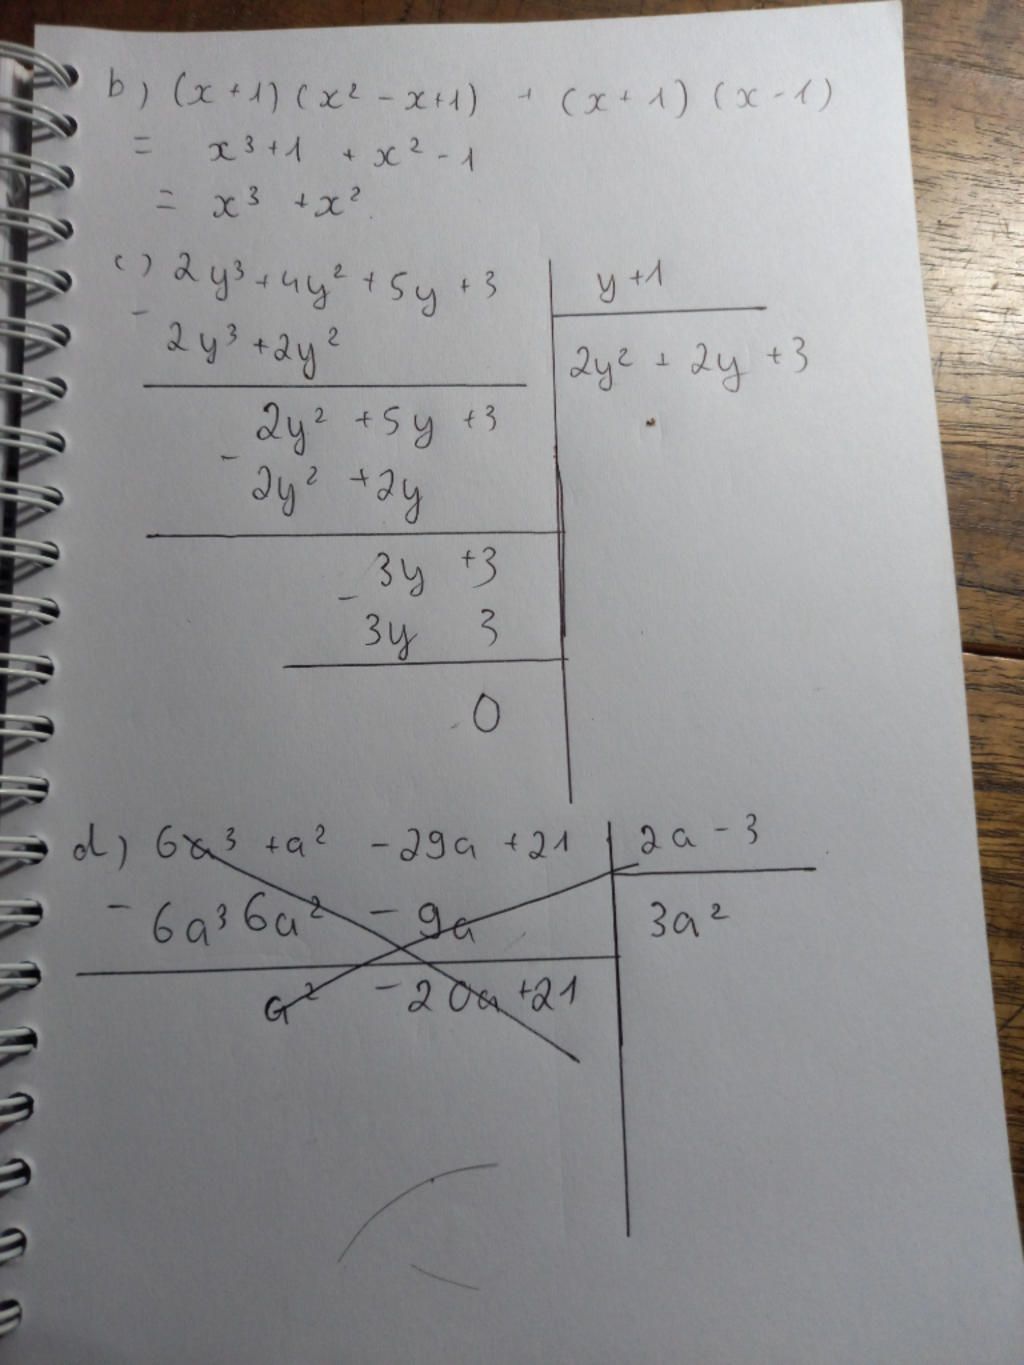 b) (x+1)(x² - x+1) + (x+1)(x-1)
= x³+1 + x² - 1
= x³ + x².
c) 2y³ + 4y² + 5y + 3 | y+1
- 2y³ + 2y² | 2y² + 2y + 3
2y² + 5y + 3
- 2y² + 2y
3y + 3
- 3y 3
0
d) 6a³ + a² - 29a + 21 | 2a - 3
- 6a³ 6a² - 9a | 3a²
a² - 20a + 21